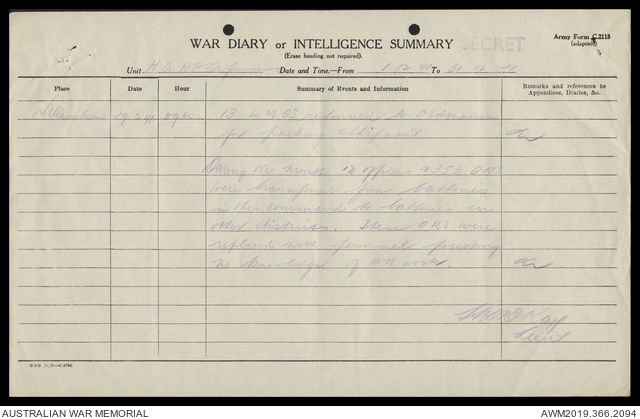 Army Form C.2118
(adapted)
WAR DIARY or INTELLIGENCE SUMMARY SECRET
(Erase heading not required).
Unit H.Q. AA Date and Time.—From 1.12.41 To 31.12.41
Place Date Hour Summary of Events and Information Remarks and references to
Appendices, Diaries, &c.
0900 13 L.M.G's returned to Ordnance
for packing & shipment
During the month 12 offrs & 353 O.R's
were transferred from batteries
in this command to batteries in
other districts. These O.R's were
replaced with personnel possessing
no knowledge of AA work.
Lieut
AUSTRALIAN WAR MEMORIAL AWM2019.366.2094